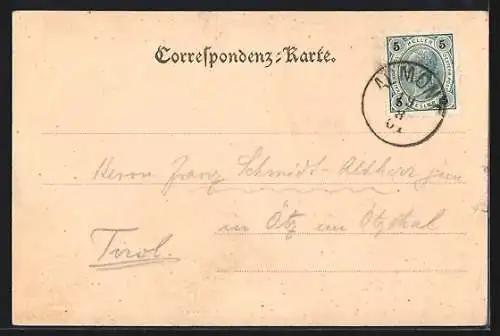 5 HELLER 5
Correspondenz-Karte.
Herrn Franz Schmidt-Altherr jun
in Ötz im Ötzthal
Tirol.